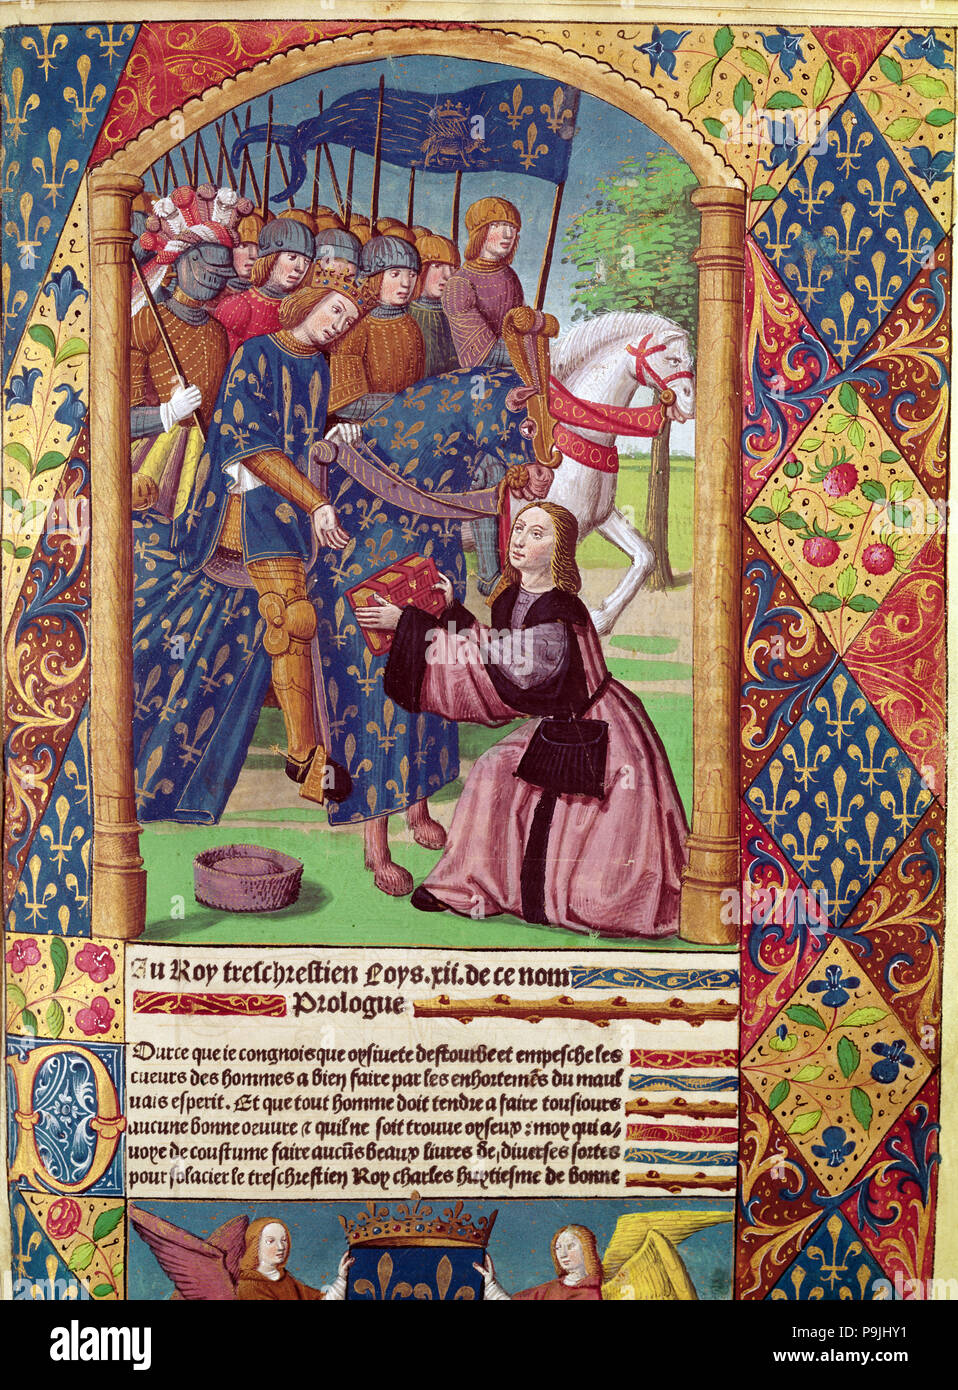 Au Roy treschrestien Loys.xii.de ce nom
Prologue
Pource que ie congnois que oysiuete destourbe et empesche les
cueurs des hommes a bien faire par les enhortemẽs du maul
uais esperit. Et que tout homme doit tendre a faire tousiours
aucune bonne oeuure ⁊ quil ne soit trouue oyseux: moy qui a⸗
uoye de coustume faire aucũs beaux liures de, diuerses sortes
pour solacier le treschrestien Roy charles huytiesme de bonne
alamy
Image ID: P9JHY1
www.alamy.com